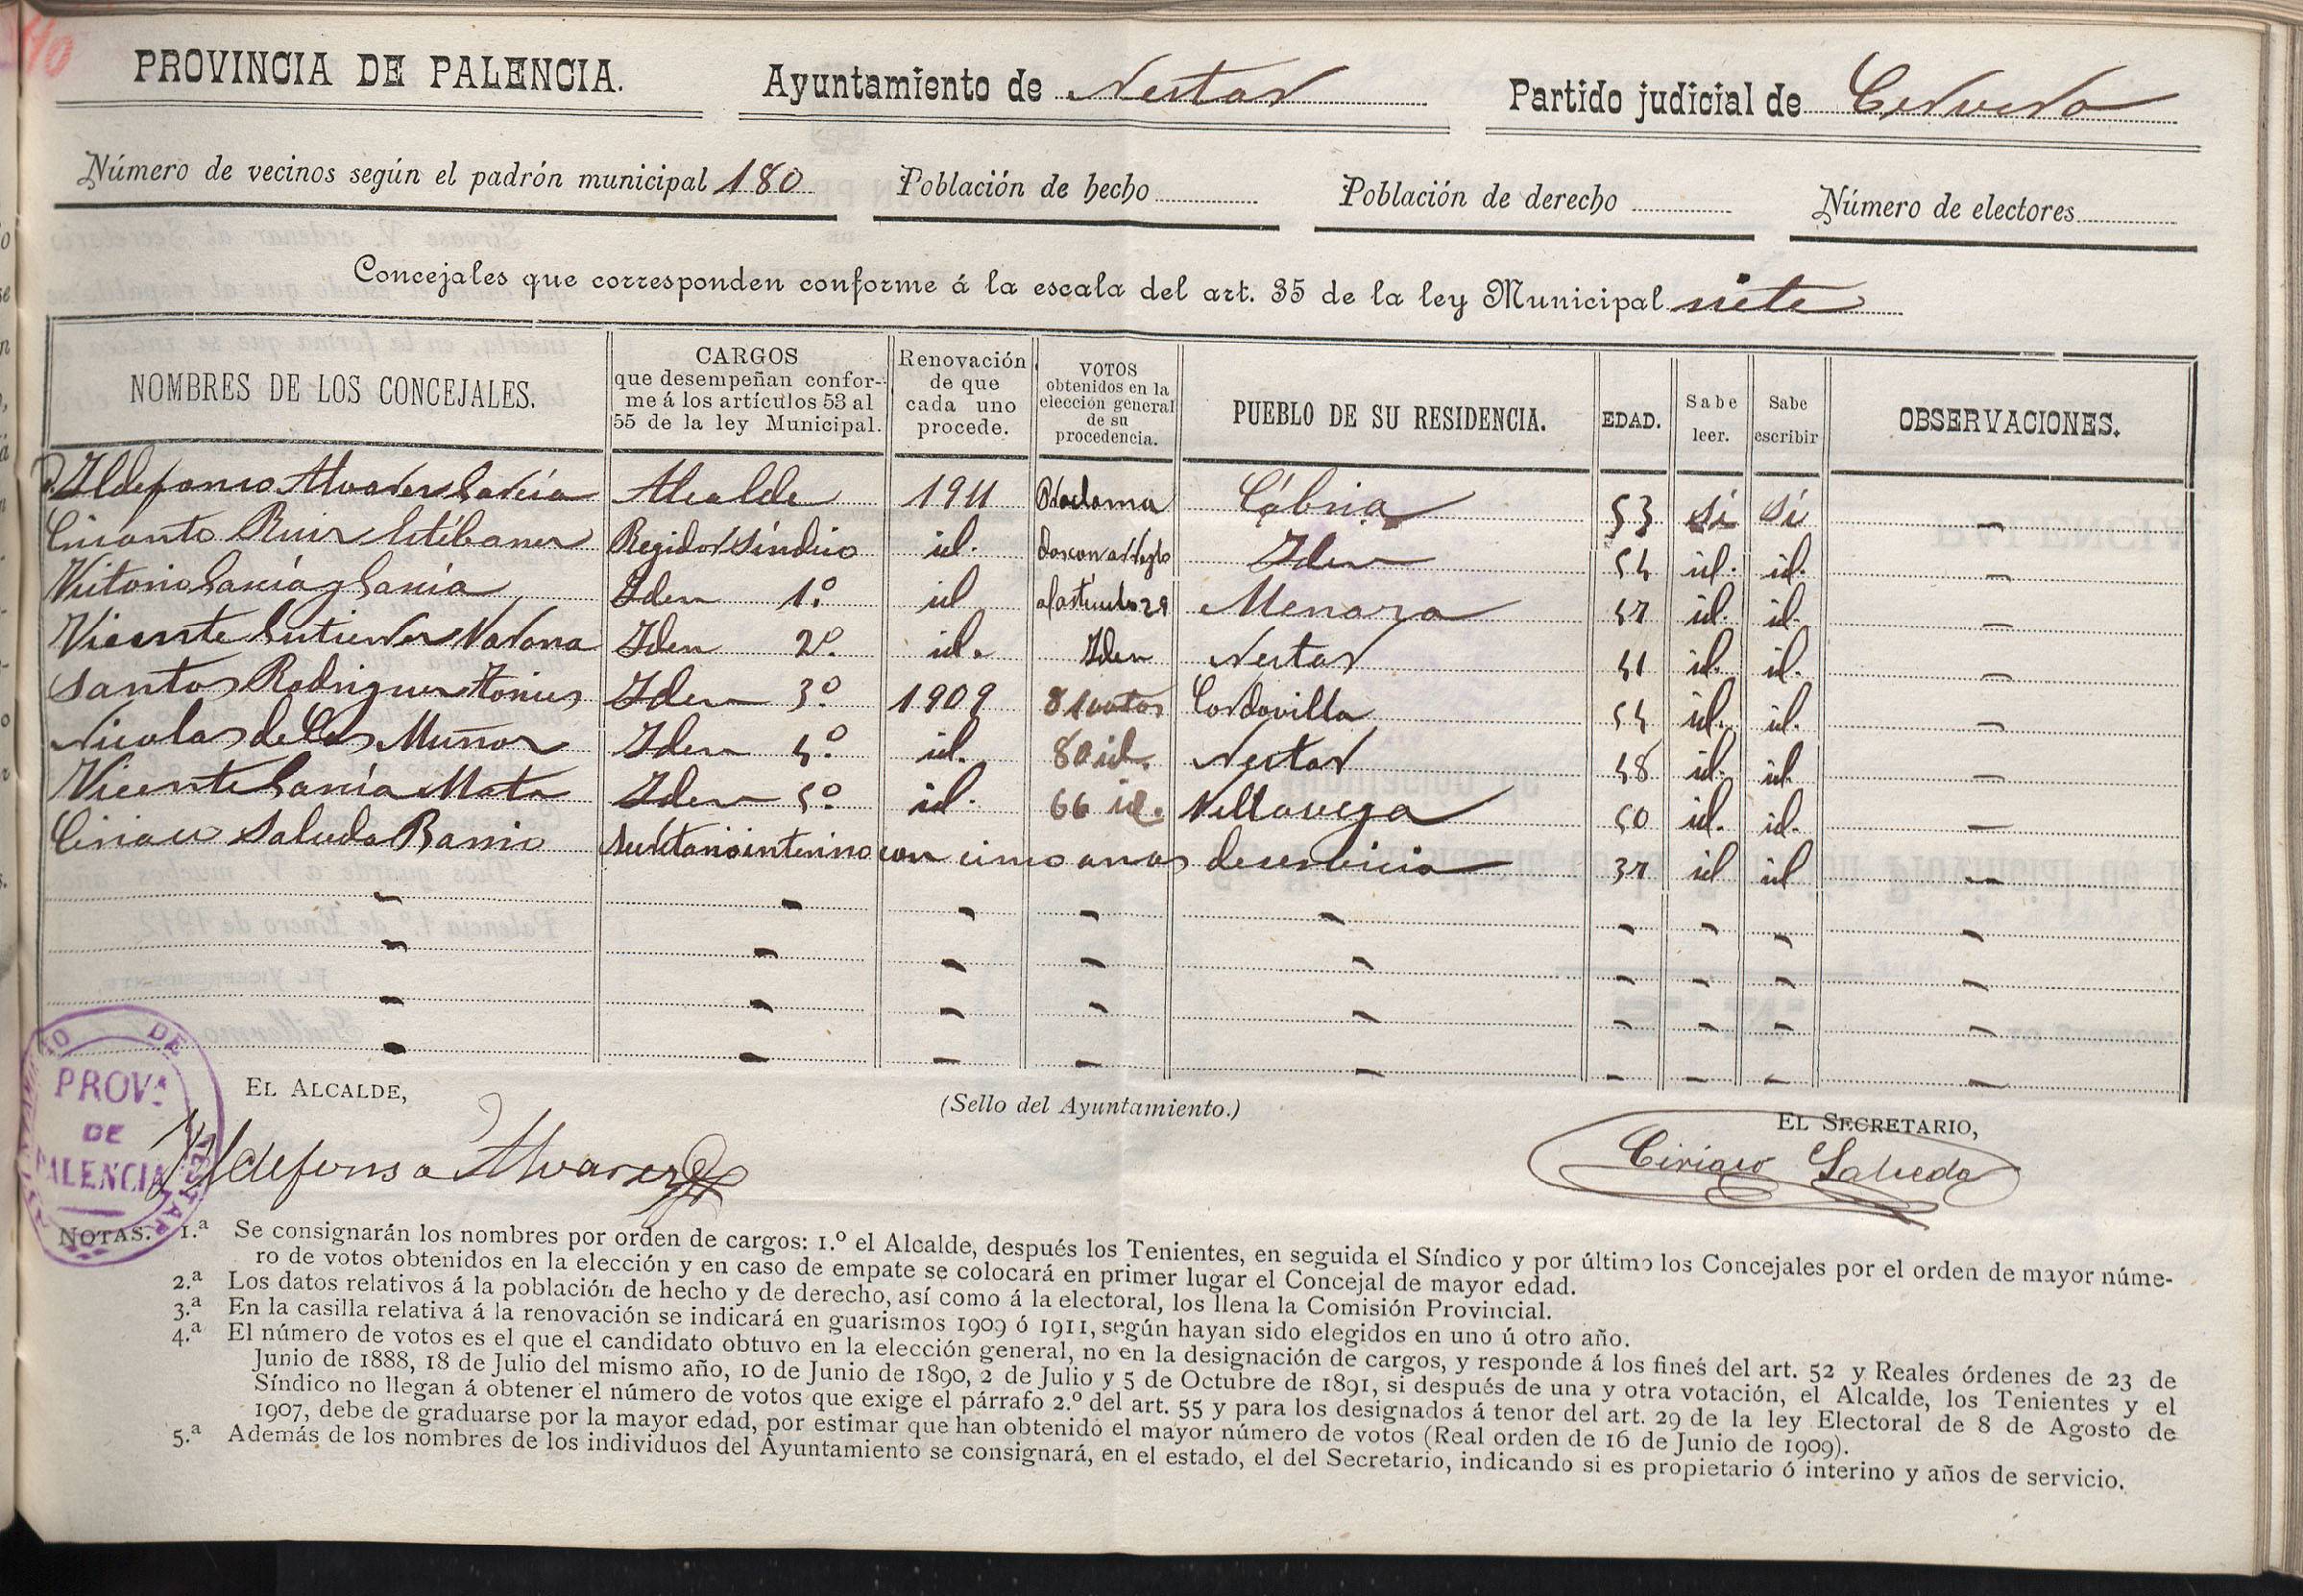 PROVINCIA DE PALENCIA. Ayuntamiento de Nestar Partido judicial de Cervera
Número de vecinos según el padrón municipal 180 Población de hecho Población de derecho Número de electores
Concejales que corresponden conforme á la escala del art. 35 de la ley Municipal siete
NOMBRES DE LOS CONCEJALES.
CARGOS
que desempeñan confor-
me á los artículos 53 al
55 de la ley Municipal.
Renovación
de que
cada uno
procede.
VOTOS
obtenidos en la
elección general
de su
procedencia.
PUEBLO DE SU RESIDENCIA.
EDAD.
Sabe
leer.
Sabe
escribir
OBSERVACIONES.
D. Ildefonso Alvarez García Alcalde 1911 Proclama Cábria 53 sí sí —
Ciriaco Ruiz Estébanez Regidor Síndico id. dos con arreglo Idem 54 id. id. —
Vitorio García y García Idem 1.º id al artículo 29 Menaza 47 id. id. —
Vicente Gutierrez Narona Idem 2.º id. Idem Nestar 41 id. id. —
Santos Rodriguez Idem 3º 1909 81 votos Cordovilla 54 id. id. —
Nicolas de Cos Muñoz Idem 4º id. 80 id. Nestar 48 id. id. —
Vicente García Mata Idem 5º id. 66 id. Villavega 50 id. id. —
Ciriaco Salceda Barrio Secretario interino con cinco años de servicio 37 id id —
EL ALCALDE,
(Sello del Ayuntamiento.)
EL SECRETARIO,
PROVA
DE
PALENCIA
Ildefonso Alvarez
Ciriaco Salceda
NOTAS. 1.ª Se consignarán los nombres por orden de cargos: 1.º el Alcalde, después los Tenientes, en seguida el Síndico y por último los Concejales por el orden de mayor núme-
ro de votos obtenidos en la elección y en caso de empate se colocará en primer lugar el Concejal de mayor edad.
2.ª Los datos relativos á la población de hecho y de derecho, así como á la electoral, los llena la Comisión Provincial.
3.ª En la casilla relativa á la renovación se indicará en guarismos 1909 ó 1911, según hayan sido elegidos en uno ú otro año.
4.ª El número de votos es el que el candidato obtuvo en la elección general, no en la designación de cargos, y responde á los fines del art. 52 y Reales órdenes de 23 de
Junio de 1888, 18 de Julio del mismo año, 10 de Junio de 1890, 2 de Julio y 5 de Octubre de 1891, si después de una y otra votación, el Alcalde, los Tenientes y el
Síndico no llegan á obtener el número de votos que exige el párrafo 2.º del art. 55 y para los designados á tenor del art. 29 de la ley Electoral de 8 de Agosto de
1907, debe de graduarse por la mayor edad, por estimar que han obtenido el mayor número de votos (Real orden de 16 de Junio de 1909).
5.ª Además de los nombres de los individuos del Ayuntamiento se consignará, en el estado, el del Secretario, indicando si es propietario ó interino y años de servicio.